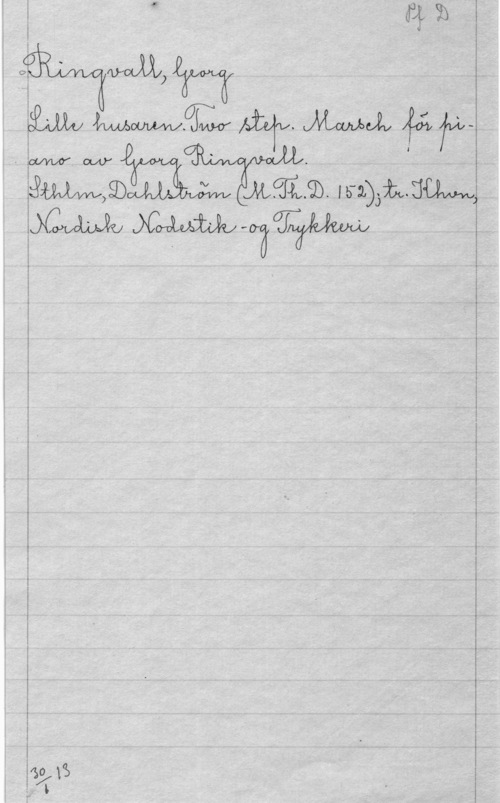 Pf D
Ringvall, Georg
Lille husaren. Two step. Marsch för pi-
ano av Georg Ringvall.
Sthlm, Dahlström (M. Th. D. 152); tr. Khvn,
Nordisk Nodestik-og Trykkeri
30/1 13